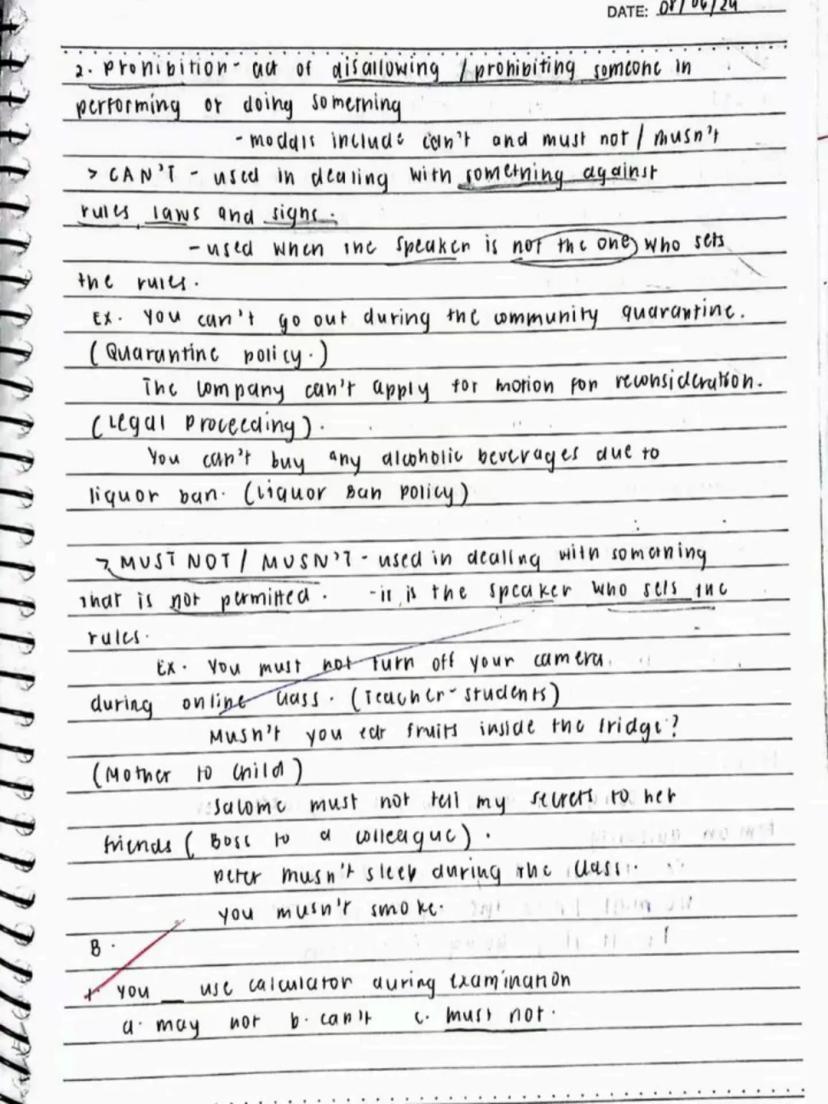 DATE: 08/06/24
2. Prohibition - act of disallowing / prohibiting someone in
performing or doing something
- modals include can't and must not / musn't
> CAN'T - used in dealing with something against
rules, laws and signs.
- used when the speaker is not the one who sets
the rules.
Ex. You can't go out during the community quarantine.
(Quarantine policy.)
The company can't apply for motion for reconsideration.
(Legal Proceeding).
You can't buy any alcoholic beverages due to
liquor ban. (Liquor Ban Policy)
> MUST NOT / MUSN'T - used in dealing with something
that is not permitted. - it is the speaker who sets the
rules.
Ex. You must not turn off your camera
during online class. (Teacher - students)
Musn't you eat fruits inside the fridge?
(Mother to child)
Salome must not tell my secrets to her
friends (Boss to a colleague).
Peter musn't sleep during the class.
You musn't smoke.
B.
You _ use calculator during examination
a. may not b. can't c. must not.